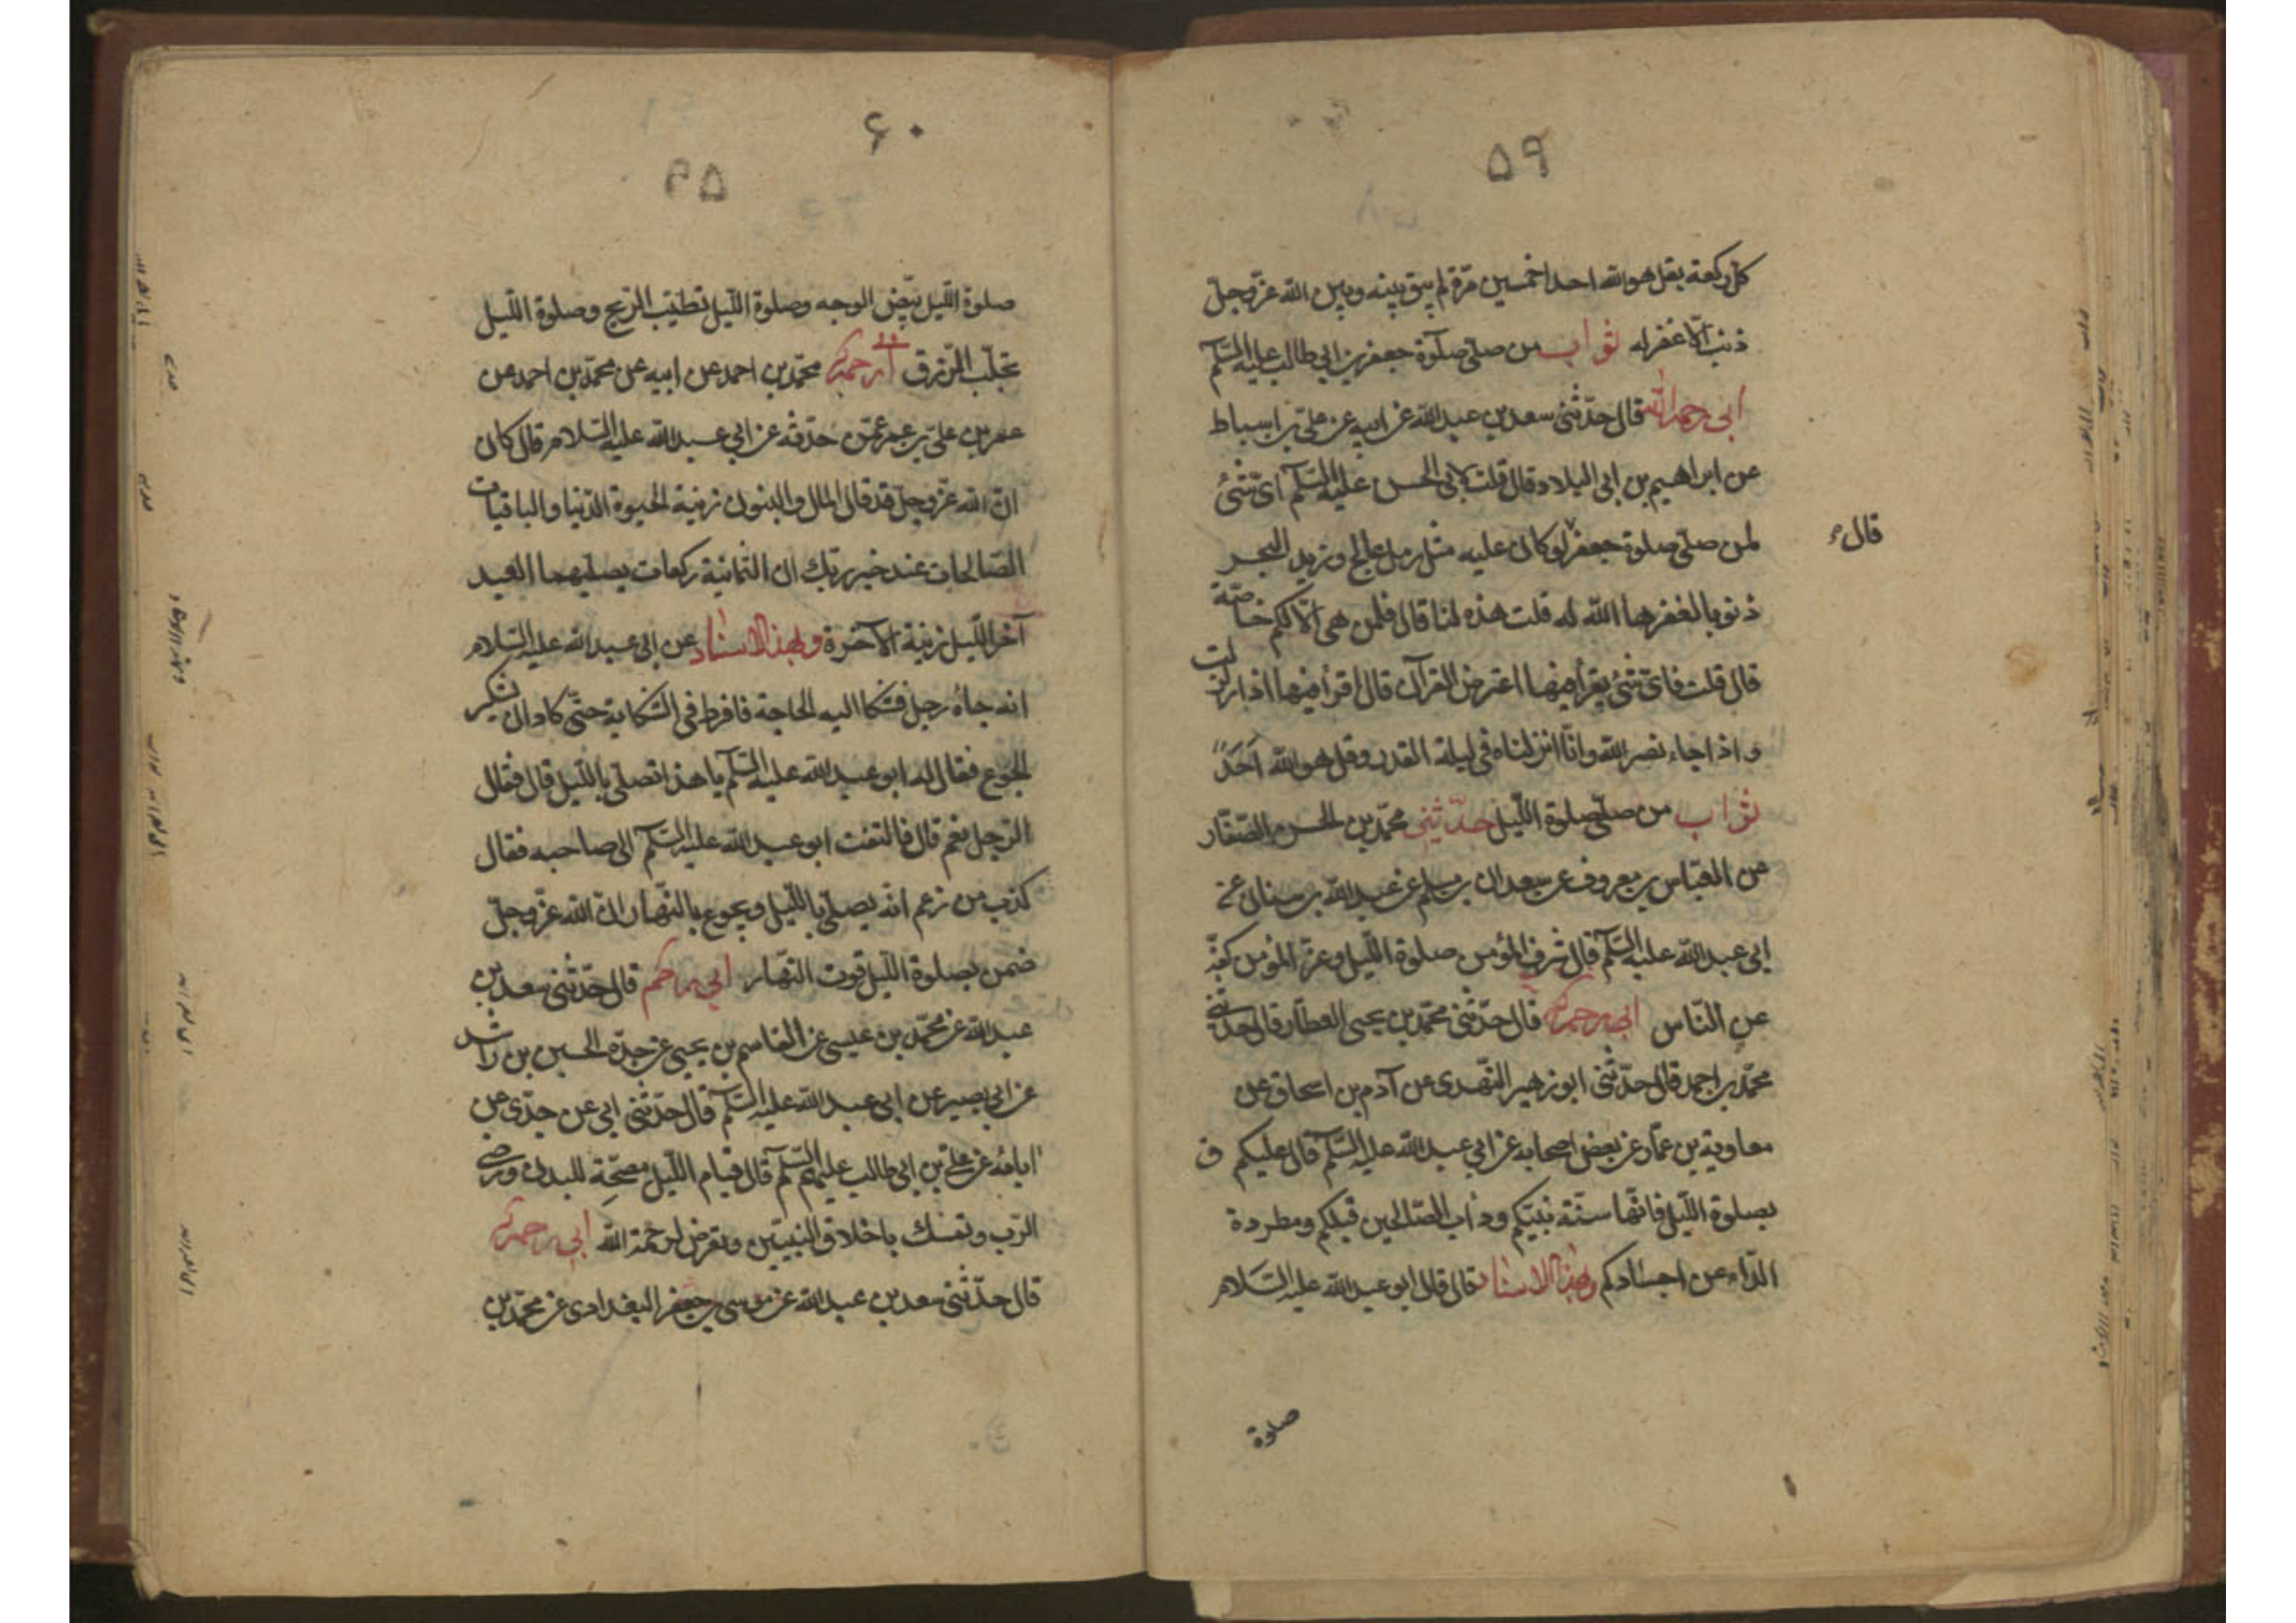 ۵۹
كل ركعة بقل هو الله احد خمسين مرّة لم يبق بينه وبين الله عزّ وجلّ
ذنب الّا غفر له ثواب من صلّى صلوة جعفر بن ابي طالب عليه السّلم
ابى رحمه الله قال حدّثنى سعد بن عبد الله عن ابيه عن علىّ بن اسباط
عن ابراهيم بن ابى البلاد قال قلت لابى الحسن عليه السّلم اىّ شئ
لمن صلّى صلوة جعفر لو كان عليه مثل رمل عالج وزبد البحر
قالء
ذنوبا لغفرها الله له قلت هذه لنا قال فلمن هى الّا لكم خاصّة
قال قلت فاىّ شئ يقرأ فيها اعترض القرآن قال اقرأ فيها اذا زلزلت
و اذا جاء نصر الله وانّا انزلناه فى ليلة القدر وقل هو الله اَحَدٌ
ثواب من صلّى صلوة اللّيل حدّثنى محمّد بن الحسن الصّفّار
عن العبّاس بن معروف عن سعدان بن مسلم عن عبد الله بن سنان عن
ابى عبد الله عليه السّلم قال شرف المؤمن صلوة اللّيل وعزّ المؤمن كفّه
عن النّاس ابى رحمه الله قال حدّثنى محمّد بن يحيى العطّار قال حدّثنى
محمّد بن احمد قال حدّثنى ابو زهير النّهدى عن آدم بن اسحاق عن
معاوية بن عمّار عن بعض اصحابه عن ابى عبد الله عليه السّلم قال عليكم
بصلوة اللّيل فانّها سنّة نبيّكم ودأب الصّالحين قبلكم ومطردة
الدّاء عن اجسادكم وبهذا الاسناد قال قال ابو عبد الله عليه السّلام
صلوة
۶۰
صلوة اللّيل تبيّض الوجه وصلوة اللّيل تطيّب الرّيح وصلوة اللّيل
تجلب الرّزق ابى رحمه الله محمّد بن احمد عن ابيه عن محمّد بن احمد عن
عمر بن علىّ بن عمر عمّن حدّثه عن ابي عبد الله عليه السّلام قال كان
انّ الله عزّ وجلّ قد قال المال والبنون زينة الحيوة الدّنيا والباقيات
الصّالحات عند خير ربّك ان الثّمانية ركعات يصلّيهما العبد
آخر اللّيل زينة الآخرة وبهذا الاسناد عن ابى عبد الله عليه السّلام
انه جاءه رجل فشكا اليه الحاجة فافرط فى الشّكاية حتّى كاد ان يشكر
الجوع فقال له ابو عبد الله عليه السّلم يا هذا تصلّى باللّيل قال فقال
الرّجل نعم قال فالتفت ابو عبد الله عليه السّلم الى صاحبه فقال
كذب من زعم انّه يصلّى باللّيل ويجوع بالنّهار انّ الله عزّ وجلّ
ضمن بصلوة اللّيل قوت النّهار ابى رحمه الله قال حدّثنى سعد بن
عبد الله عن محمّد بن عيسى عن القاسم بن يحيى عن جدّه الحسن بن راشد
عن ابى بصير عن ابى عبد الله عليه السّلم قال حدّثنى ابى عن جدّى عن
ابائه عن علىّ بن ابى طالب عليهم السّلم قال قيام اللّيل مصحّة للبدن ورضى
الرّب وتمسّك باخلاق النبيّين وتعرض لرحمة الله ابى رحمه الله
قال حدّثنى سعد بن عبد الله عن موسى بن جعفر البغدادى عن محمّد بن